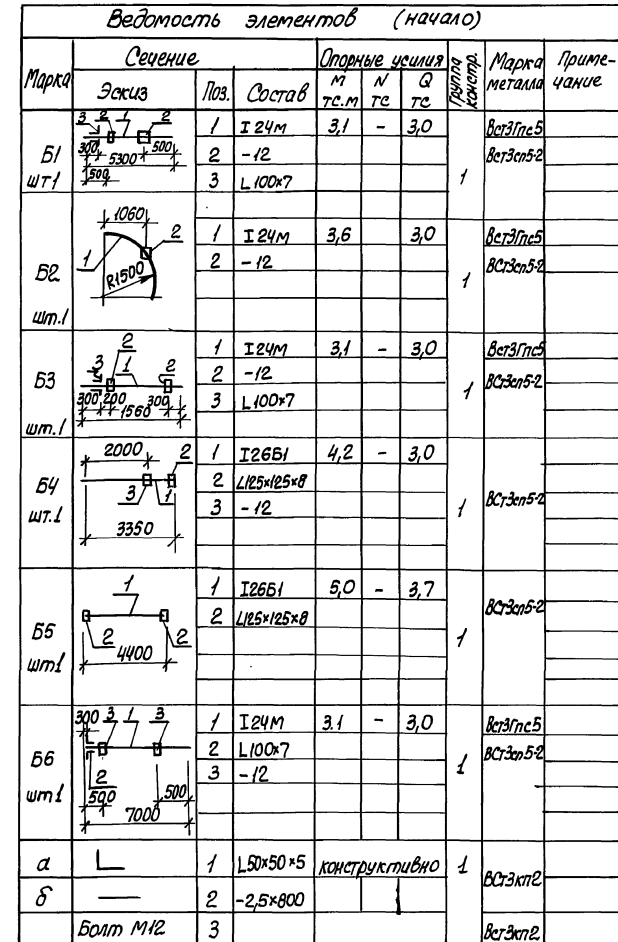 Ведомость элементов (начало)
Марка Сечение Опорные усилия Группа констр. Марка металла Приме-чание
Эскиз Поз. Состав М тс.м N тс Q тс
Б1 шт1
3 2 1 2
300 5300 500
500
1 I 24М 3,1 - 3,0 1 Вст3Гпс5
2 -12 Вст3сп5-2
3 L 100×7
Б2 шт.1
1060
1 2
R1500
1 I 24М 3,6 3,0 1 Вст3Гпс5
2 -12 ВСт3сп5-2
Б3 шт.1
2
3 1 2
300 200 300
1560
1 I24М 3,1 - 3,0 1 Вст3Гпс5
2 -12 ВСт3сп5-2
3 L100×7
Б4 шт.1
2000 2
3 1
3350
1 I26Б1 4,2 - 3,0 1 ВСт3сп5-2
2 L125×125×8
3 -12
Б5 шт1
1
2 4400 2
1 I26Б1 5,0 - 3,7 1 ВСт3сп5-2
2 L125×125×8
Б6 шт1
300 3 1 3
2
500 500
7000
1 I24М 3.1 - 3,0 1 Вст3Гпс5
2 L100×7 ВСт3сп5-2
3 -12
а 1 L50×50×5 конструктивно 1 ВСт3кп2
б 2 -2,5×800
Болт М12 3 Вст3кп2